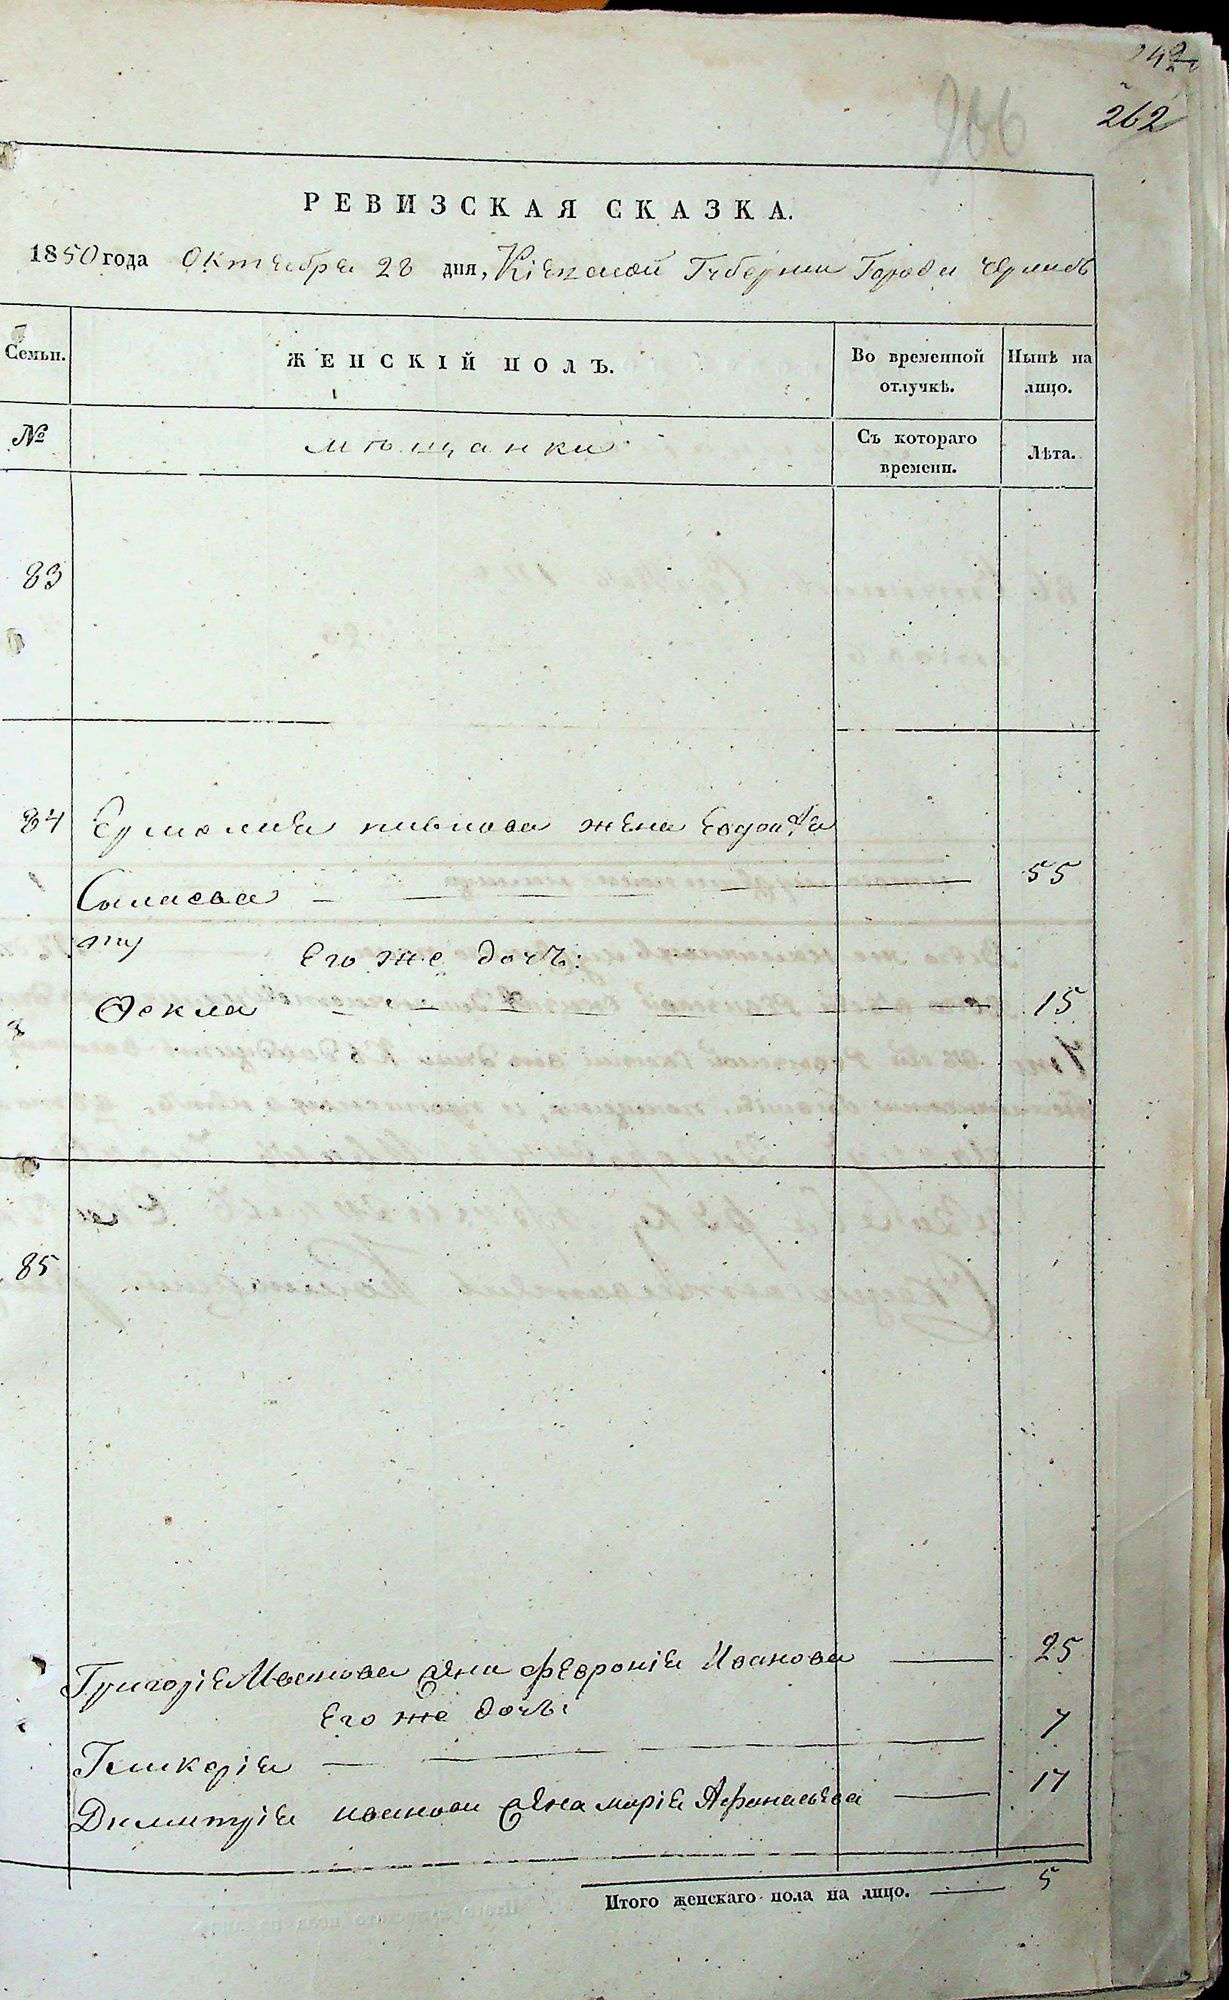 262
266
РЕВИЗСКАЯ СКАЗКА.
1850 года Октября 28 дня, Кіевской Губерніи Города
Семьи.
ЖЕНСКІЙ ПОЛЪ.
Во временной отлучкѣ.
Нынѣ на лицо.
№
мѣщанки
Съ котораго времени.
Лѣта.
83
84 Ермолая жена Евдокія
55
Его же дочь:
Фекла 15
85
Григорія Иванова жена Февронія Иванова 25
Его же дочь:
Гликерія 7
Димитрія иванова жена марія Афанасьева 17
Итого женскаго пола на лицо. 5